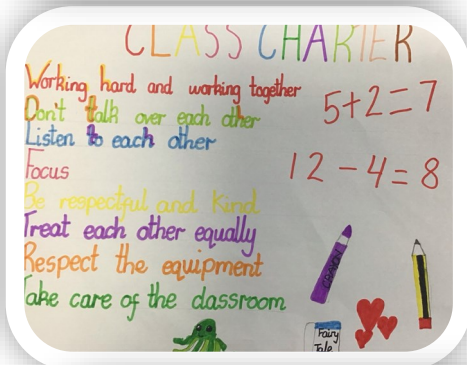 CLASS CHARTER
Working hard and working together
Don't talk over each other
Listen to each other
Focus
Be respectful and kind
Treat each other equally
Respect the equipment
Take care of the classroom
5+2=7
12-4=8
CRAYON
Fairy
Tale